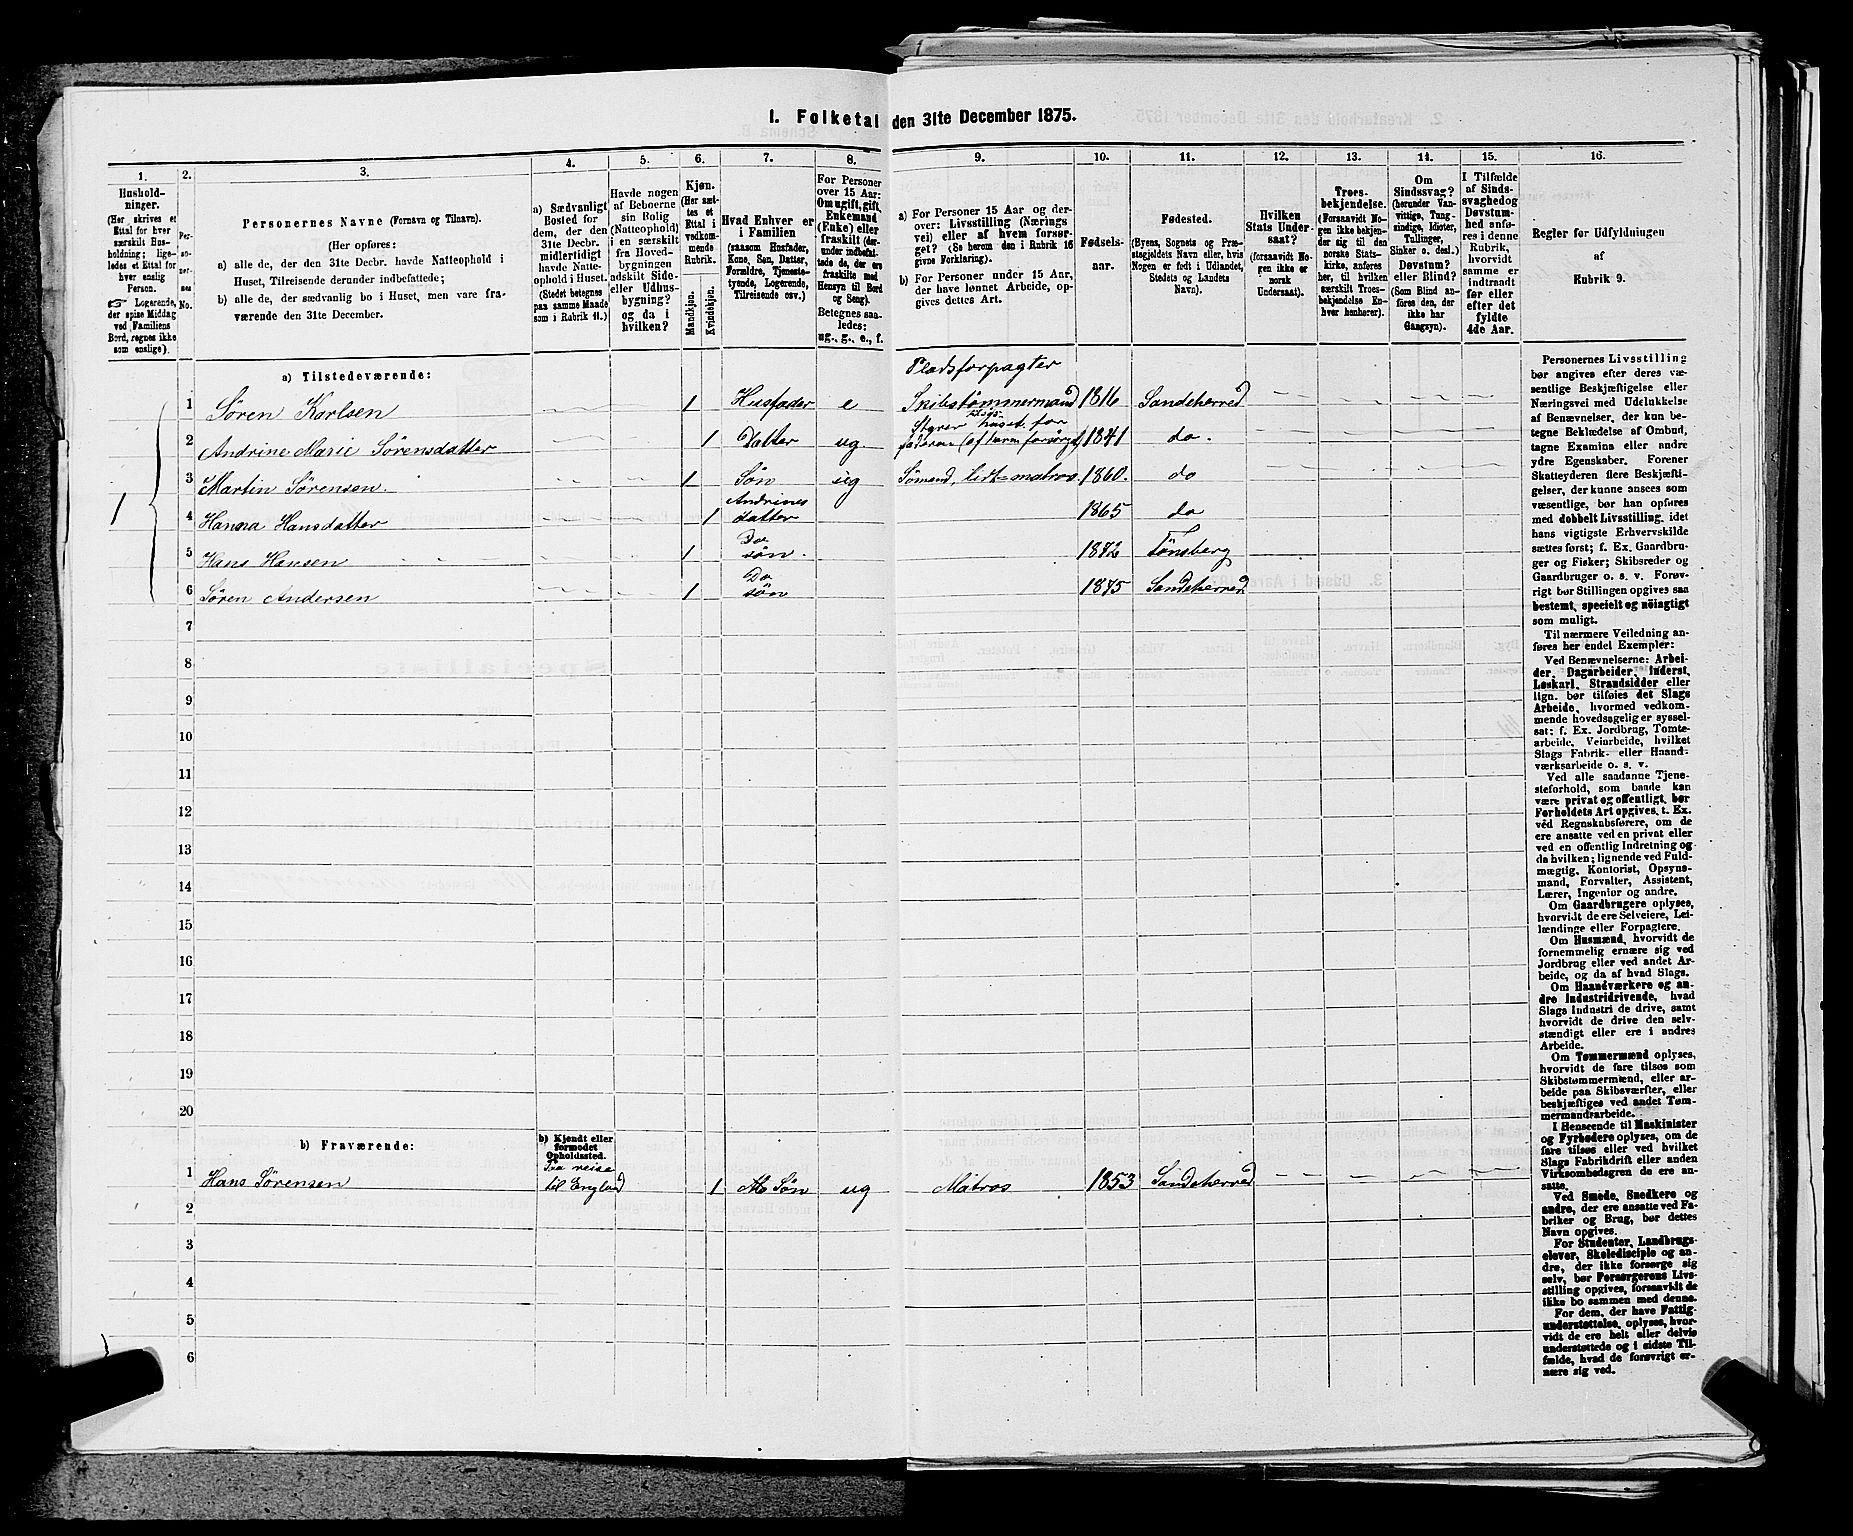 1. Folketal den 31te December 1875.
1.
Hushold-
ninger.
(Her skrives et
Ettal for hver
særskilt Hus-
holdning; lige-
ledes et Ettal for
hver enslig
Person.
☞ Logerende,
der spise Middag
ved Familiens
Bord, regnes ikke
som enslige).
2.
Per-
soner-
nes
No.
3.
Personernes Navne (Fornavn og Tilnavn).
(Her opføres:
a) alle de, der den 31te Decbr. havde Natteophold i
Huset, Tilreisende derunder indbefattede;
b) alle de, der sædvanlig bo i Huset, men vare fra-
værende den 31te December.
4.
a) Sædvanligt
Bosted for
dem, der den
31te Decbr.
midlertidigt
havde Natte-
ophold i Huset.
(Stedet betegnes
paa samme Maade
som i Rubrik 11.)
5.
Havde nogen
af Beboerne
sin Bolig
(Natteophold)
i en særskilt
fra Hoved-
bygningen
adskilt Side-
eller Udhus-
bygning?
og da i
hvilken?
6.
Kjøn.
(Her sæt-
tes et
Ettal i
vedkom-
mende
Rubrik.
Mandkjøn.
Kvindekjøn.
7.
Hvad Enhver er
i Familien
(saasom Husfader,
Kone, Søn, Datter,
Forældre, Tjeneste-
tyende, Logerende,
Tilreisende osv.)
8.
For Personer
over 15 Aar:
Om ugift, gift,
Enkemand
(Enke) eller
fraskilt (der-
under indbefat-
tede de, der ere
fraskilte med
Hensyn til Bord
og Seng).
Betegnes saa-
ledes:
ug., g., e., f.
9.
a) For Personer 15 Aar og der-
over: Livsstilling (Nærings-
vei) eller af hvem forsør-
get? (Se herom den i Rubrik 16
givne Forklaring).
b) For Personer under 15 Aar,
der have lønnet Arbeide, op-
gives dettes Art.
10.
Fødsels-
aar.
11.
Fødested.
(Byens, Sognets og Præ-
stegjeldets Navn eller, hvis
Nogen er født i Udlandet,
Stedets og Landets
Navn).
12.
Hvilken
Stats Under-
saat?
(forsaavidt No-
gen ikke er
norsk
Undersaat).
13.
Troes-
bekjendelse.
(Forsaavidt No-
gen ikke bekjen-
der sig til den
norske Stats-
kirke, anføres
her, til hvilken
særskilt Troes-
bekjendelse En-
hver henhører).
14.
Om
Sindssvag?
(herunder Van-
vittige, Tung-
sindige, Idioter,
Tullinger,
Sinker o. desl.)
Døvstum?
eller Blind?
(Som Blind an-
føres den, der
ikke har
Gangsyn).
15.
I Tilfælde
af Sinds-
svaghed og
Døvstum-
hed anføres
i denne
Rubrik,
hvorvidt
samme er
indtraadt
før eller
efter det
fyldte
4de Aar.
16.
Regler for Udfyldningen
af
Rubrik 9.
a) Tilstedeværende:
Pladsforpagter
1 Søren Karlsen 1 Husfader e Skibstømmermand 1816 Sandeherred
Styrer huset for
2 Andrine Marie Sørensdatter 1 Datter ug faderen (af ham forsørget) 1841 do.
3 Martin Sørensen. 1 Søn ug Sømand, let-matros 1860. do
Andrines
1 4 Hanna Hansdatter 1 datter 1865 do
Do
5 Hans Hansen 1 søn. 1872 Tønsberg
Do
6 Søren Andersen 1 søn 1875 Sandeherred
7
8
9
10
11
12
13
14
15
16
17
18
19
20
b) Fraværende:
b) Kjendt eller
formodet
Opholdssted.
Paa reise
1 Hans Sørensen til England 1 Søn ug Matros 1853 Sandeherred
2
3
4
5
6
Personernes Livsstilling
bør angives efter deres væ-
sentlige Beskjæftigelse eller
Næringsvei med Udelukkelse
af Benævnelser, der kun be-
tegne Beklædelse af Ombud,
tagne Examina eller andre
ydre Egenskaber. Forener
Skatteyderen flere Beskjæfti-
gelser, der kunne ansees som
væsentlige, bør han opføres
med dobbelt Livsstilling, idet
hans vigtigste Erhvervskilde
sættes først; f. Ex. Gaardbru-
ger og Fisker; Skibsreder og
Gaardbruger o. s. v. Forøv-
rigt bør Stillingen opgives saa
bestemt, specielt og nöiagtigt
som muligt.
Til nærmere Veiledning an-
føres her endel Exempler:
Ved Benævnelserne: Arbei-
der, Dagarbeider, Inderst,
Løskarl, Strandsidder eller
lign. bør tilføies det Slags
Arbeide, hvormed vedkom-
mende hovedsagelig er syssel-
sat; f. Ex. Jordbrug, Tomte-
arbeide, Veiarbeide, hvilket
Slags Fabrik- eller Haand-
værksarbeide o. s. v.
Ved alle saadanne Tjene-
steforhold, som baade kan
være privat og offentligt, bør
Forholdets Art opgives, t. Ex.
ved Regnskabsførere, om de
ere ansatte ved en privat eller
ved en offentlig Indretning og
da hvilken; lignende ved Fuld-
mægtig, Kontorist, Opsyns-
mand, Forvalter, Assistent,
Lærer, Ingeniør og andre.
Om Gaardbrugere oplyses,
hvorvidt de ere Selveiere, Lei-
lændinge eller Forpagtere.
Om Husmænd, hvorvidt de
fornemmelig ernære sig ved
Jordbrug eller ved andet Ar-
beide, og da af hvad Slags.
Om Haandværkere og an-
dre Industridrivende, hvad
Slags Industri de drive, samt
hvorvidt de drive den selv-
stændigt eller ere i andres
Arbeide.
Om Tømmermænd oplyses,
hvorvidt de fare tilsøs som
Skibstømmermænd, eller ar-
beide paa Skibsværfter, eller
beskjæftiges ved andet Tøm-
mermandsarbeide.
I Henseende til Maskinister
og Fyrbødere oplyses, om de
fare tilsøs eller ved hvilket
Slags Fabrikdrift eller anden
Virksomhedsgren de ere an-
satte.
Ved Smede, Snedkere og
andre, der ere ansatte ved Fa-
briker og Brug, bør dettes
Navn opgives.
For Studenter, Landbrugs-
elever, Skoledisciple og an-
dre, der ikke forsørge sig
selv, bør Forsørgerens Livs-
stilling opgives, forsaavidt de
ikke bo sammen med denne.
For dem, der have Fattig-
understøttelse, oplyses, hvor-
vidt de ere helt eller delvis
understøttede og i sidste Til-
fælde, hvad de forøvrigt er-
nære sig ved.